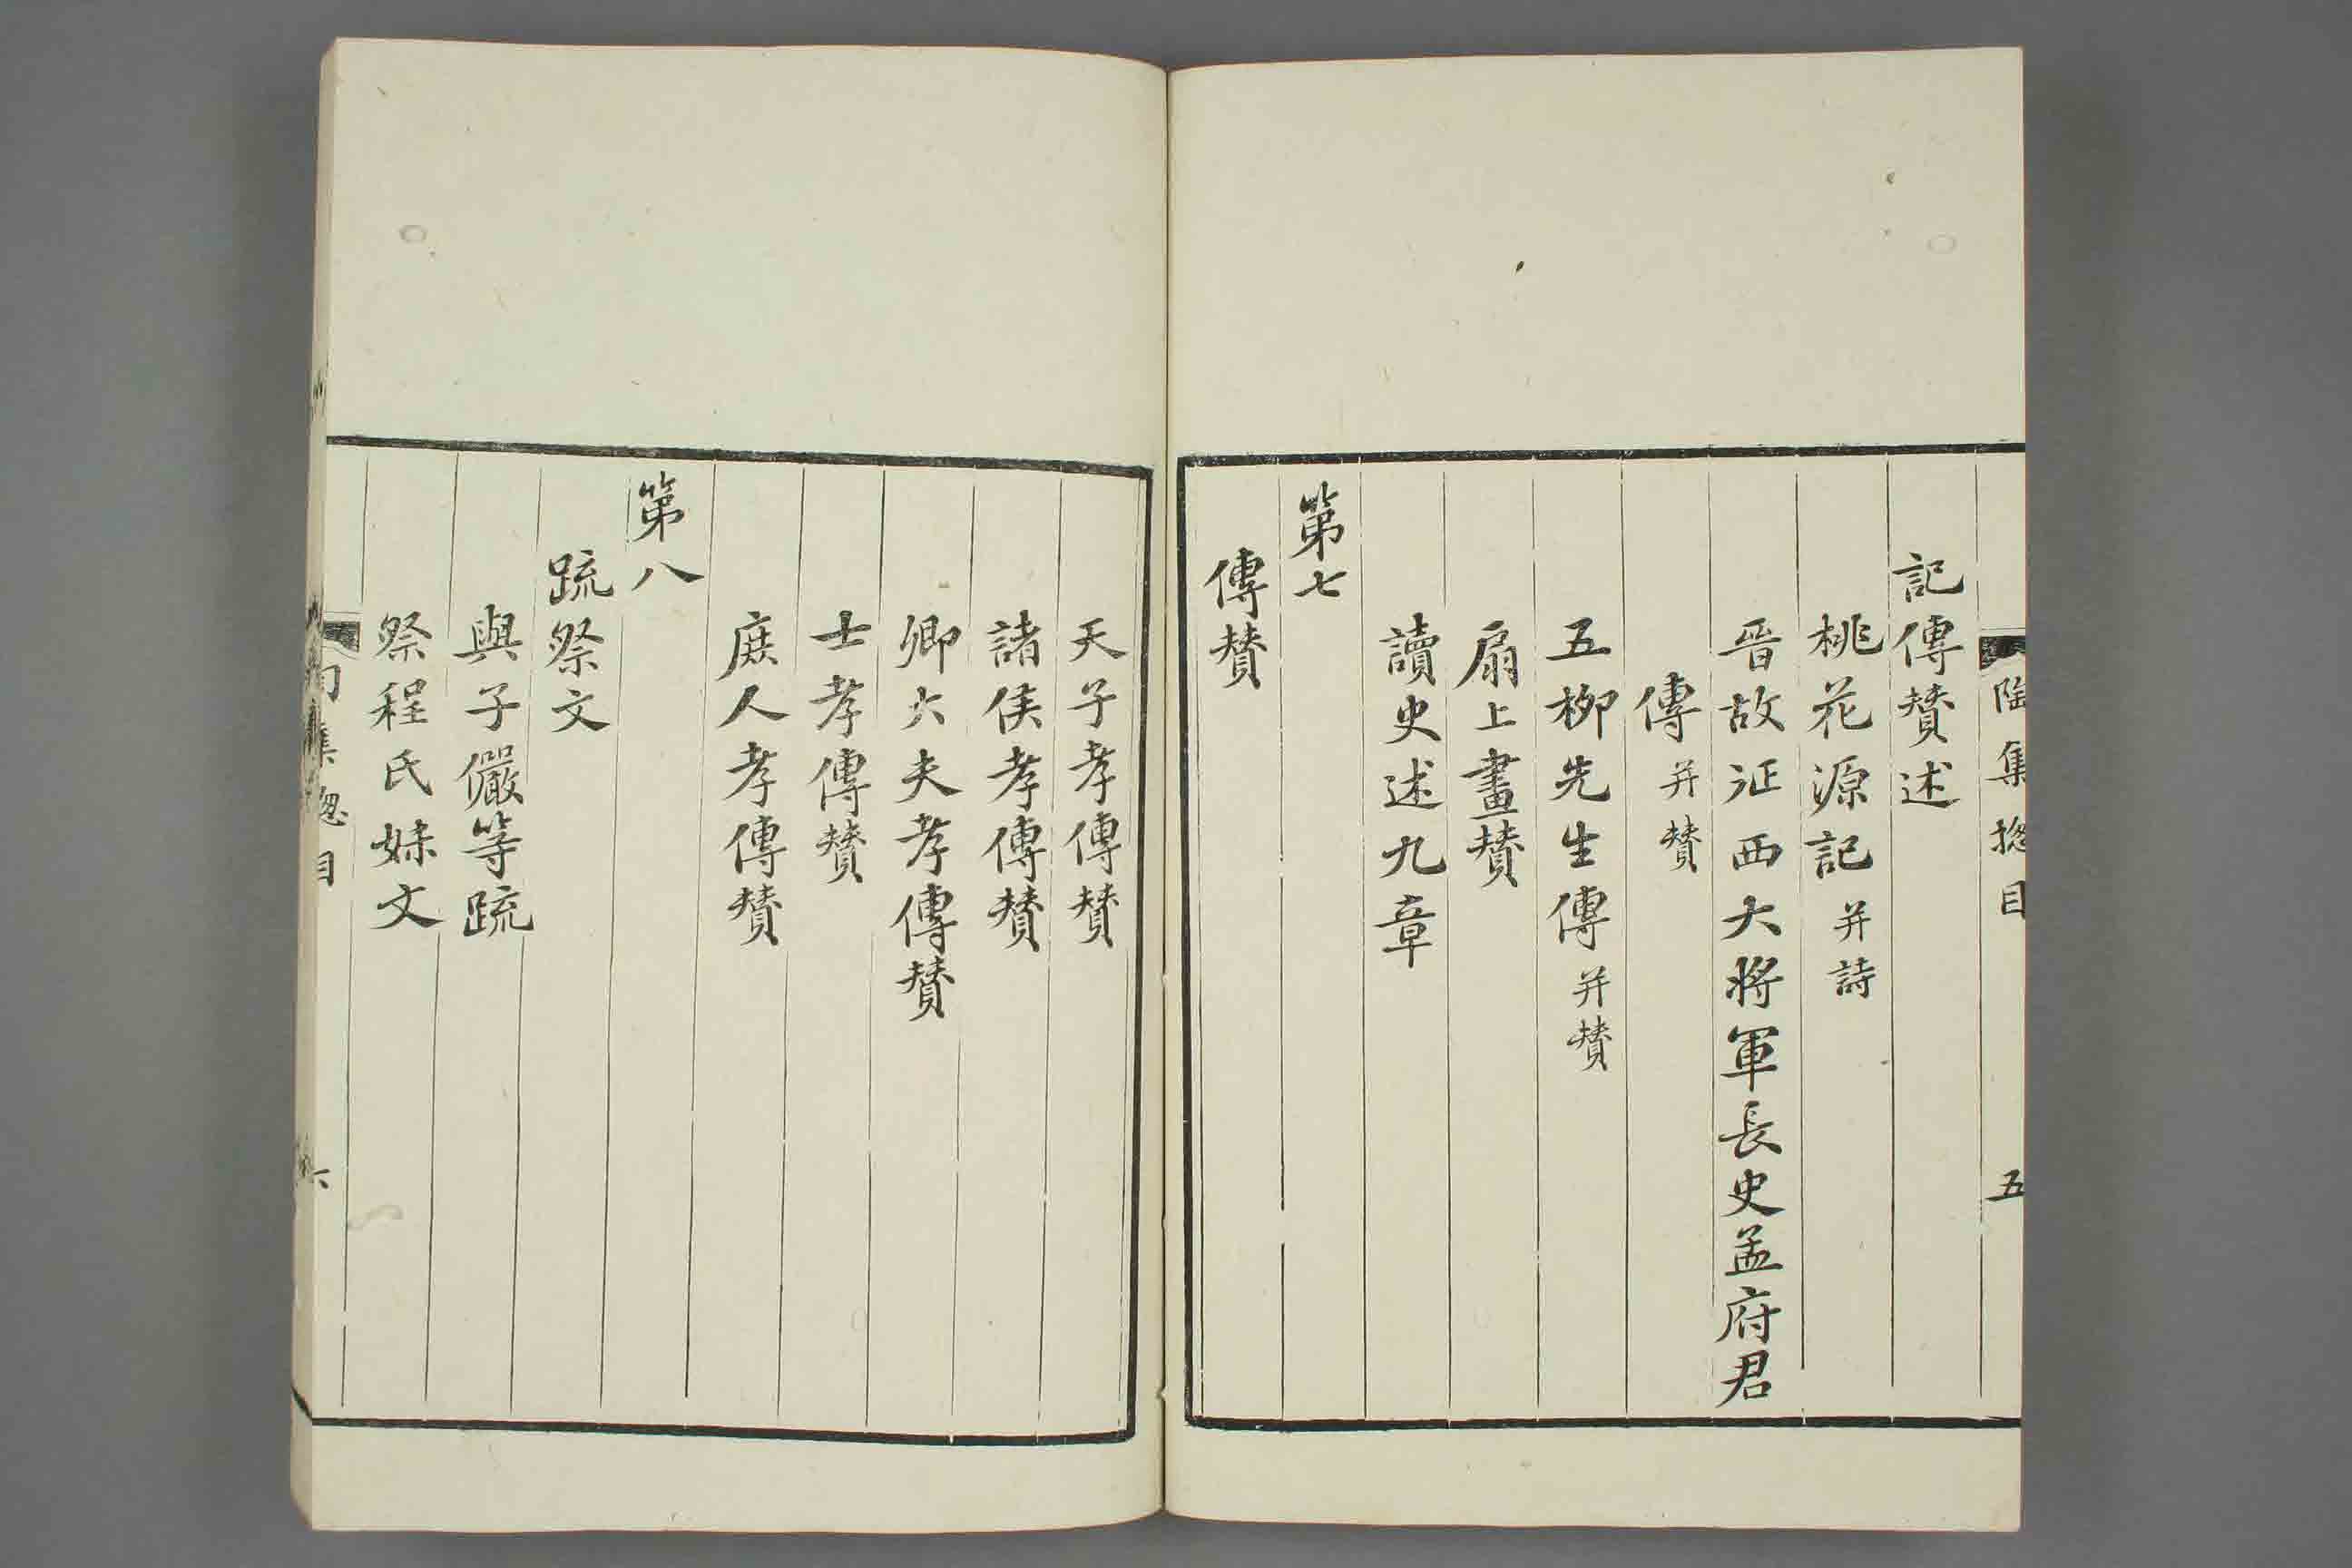 陶集揔目　五
記傳賛述
桃花源記并詩
晋故征西大將軍長史孟府君
傳并賛
五柳先生傳并賛
扇上畫賛
讀史述九章
第七
傳賛
天子孝傳賛
諸侯孝傳賛
卿大夫孝傳賛
士孝傳賛
庶人孝傳賛
第八
䟽祭文
與子儼等䟽
祭程氏妹文
集揔目　六